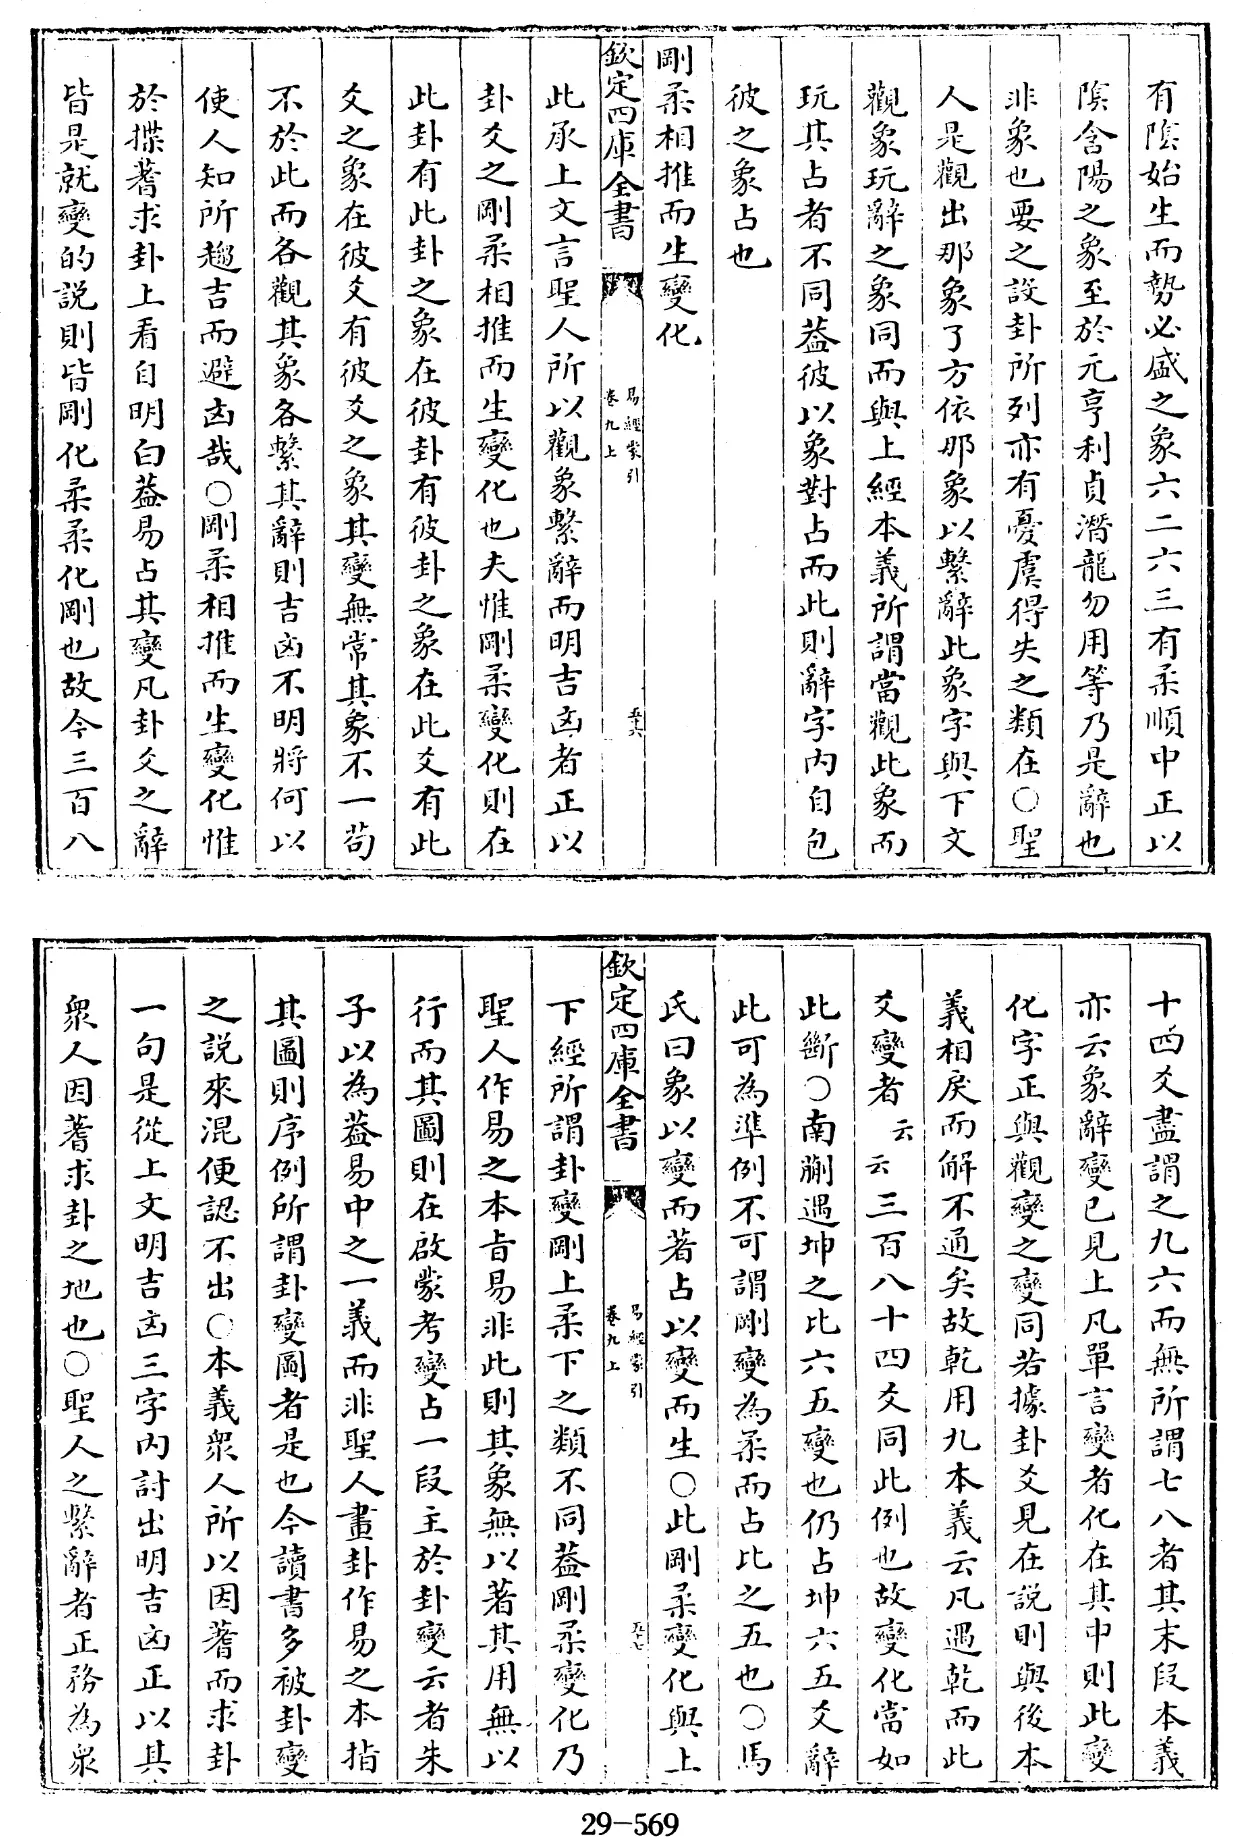 有隂始生而勢必盛之象六二六三有柔順中正以
隂含陽之象至於元亨利貞潛龍勿用等乃是辭也
非象也要之設卦所列亦有憂虞得失之類在〇聖
人是觀出那象了方依那象以繫辭此象字與下文
觀象玩辭之象同而與上經本義所謂當觀此象而
玩其占者不同葢彼以象對占而此則辭字内自包
彼之象占也
剛柔相推而生變化
欽定四庫全書
易經蒙引
卷九上
五十六
此承上文言聖人所以觀象繫辭而明吉凶者正以
卦爻之剛柔相推而生變化也夫惟剛柔變化則在
此卦有此卦之象在彼卦有彼卦之象在此爻有此
爻之象在彼爻有彼爻之象其變無常其象不一茍
不於此而各觀其象各繫其辭則吉凶不明將何以
使人知所趨吉而避凶哉〇剛柔相推而生變化惟
於揲蓍求卦上看自明白葢易占其變凡卦爻之辭
皆是就變的説則皆剛化柔柔化剛也故今三百八
十四爻盡謂之九六而無所謂七八者其末段本義
亦云象辭變已見上凡單言變者化在其中則此變
化字正與觀變之變同若據卦爻見在説則與後本
義相戾而解不通矣故乾用九本義云凡遇乾而此
爻變者云云三百八十四爻同此例也故變化當如
此斷〇南蒯遇坤之比六五變也仍占坤六五爻辭
此可為凖例不可謂剛變為柔而占比之五也〇馬
氏曰象以變而著占以變而生〇此剛柔變化與上
欽定四庫全書
易經蒙引
卷九上
五十七
下經所謂卦變剛上柔下之類不同葢剛柔變化乃
聖人作易之本旨易非此則其象無以著其用無以
行而其圖則在啟蒙考變占一段主於卦變云者朱
子以為葢易中之一義而非聖人畫卦作易之本指
其圖則序例所謂卦變圖者是也今讀書多被卦變
之説來混便認不出〇本義衆人所以因蓍而求卦
一句是從上文明吉凶三字内討出明吉凶正以其
衆人因蓍求卦之地也〇聖人之繫辭者正務為衆
29-569